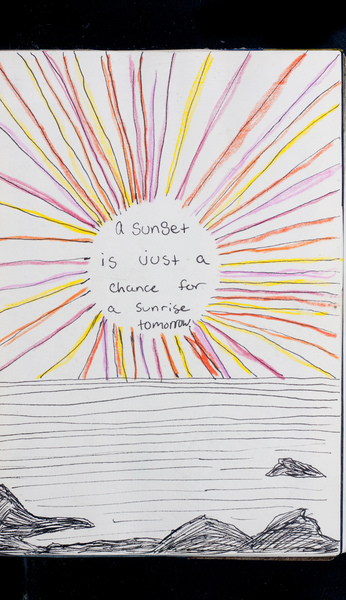 a sunset
is just a
chance for
a sunrise
tomorrow.